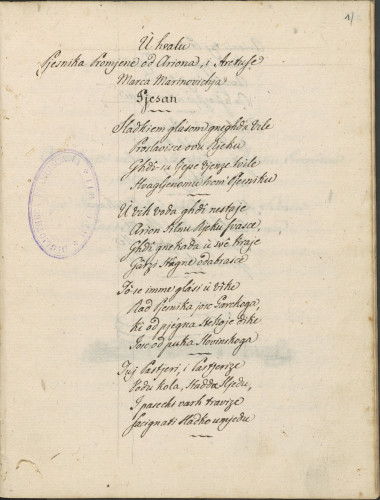 1/
U hvalu
Pjesnika Promjene od Ariona, i Aretuse
Marca Marinovichja
Pjesan
Sladkiem glasom gneghda Vile
Proslavisce ovu Rjeku
Ghdi su ljepe vjenze svile
Hvagljenomu
U vih voda ghdi nestaje
Arion silnu Rjeku svasce,
Ghdi gnekada u sve kraje
Gatzi Stogne odabrasce
Tò se imme glasi u vike
Rad Pjesnika josc Garskoga,
ki od pjegna stekoje dike
Josc od puka Slovinskoga
Tuj Pastjeri, i Pastjerize
Vodu kola, Stadda sljedu,
I pasecht varh travize
sladko umjedu